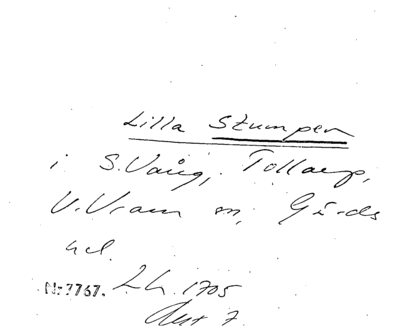 Lilla Stumpen
i S. Vång, Tollarp,
V. Vram m, Gärds
hd.
Nr 7767. Lh. 1705
7